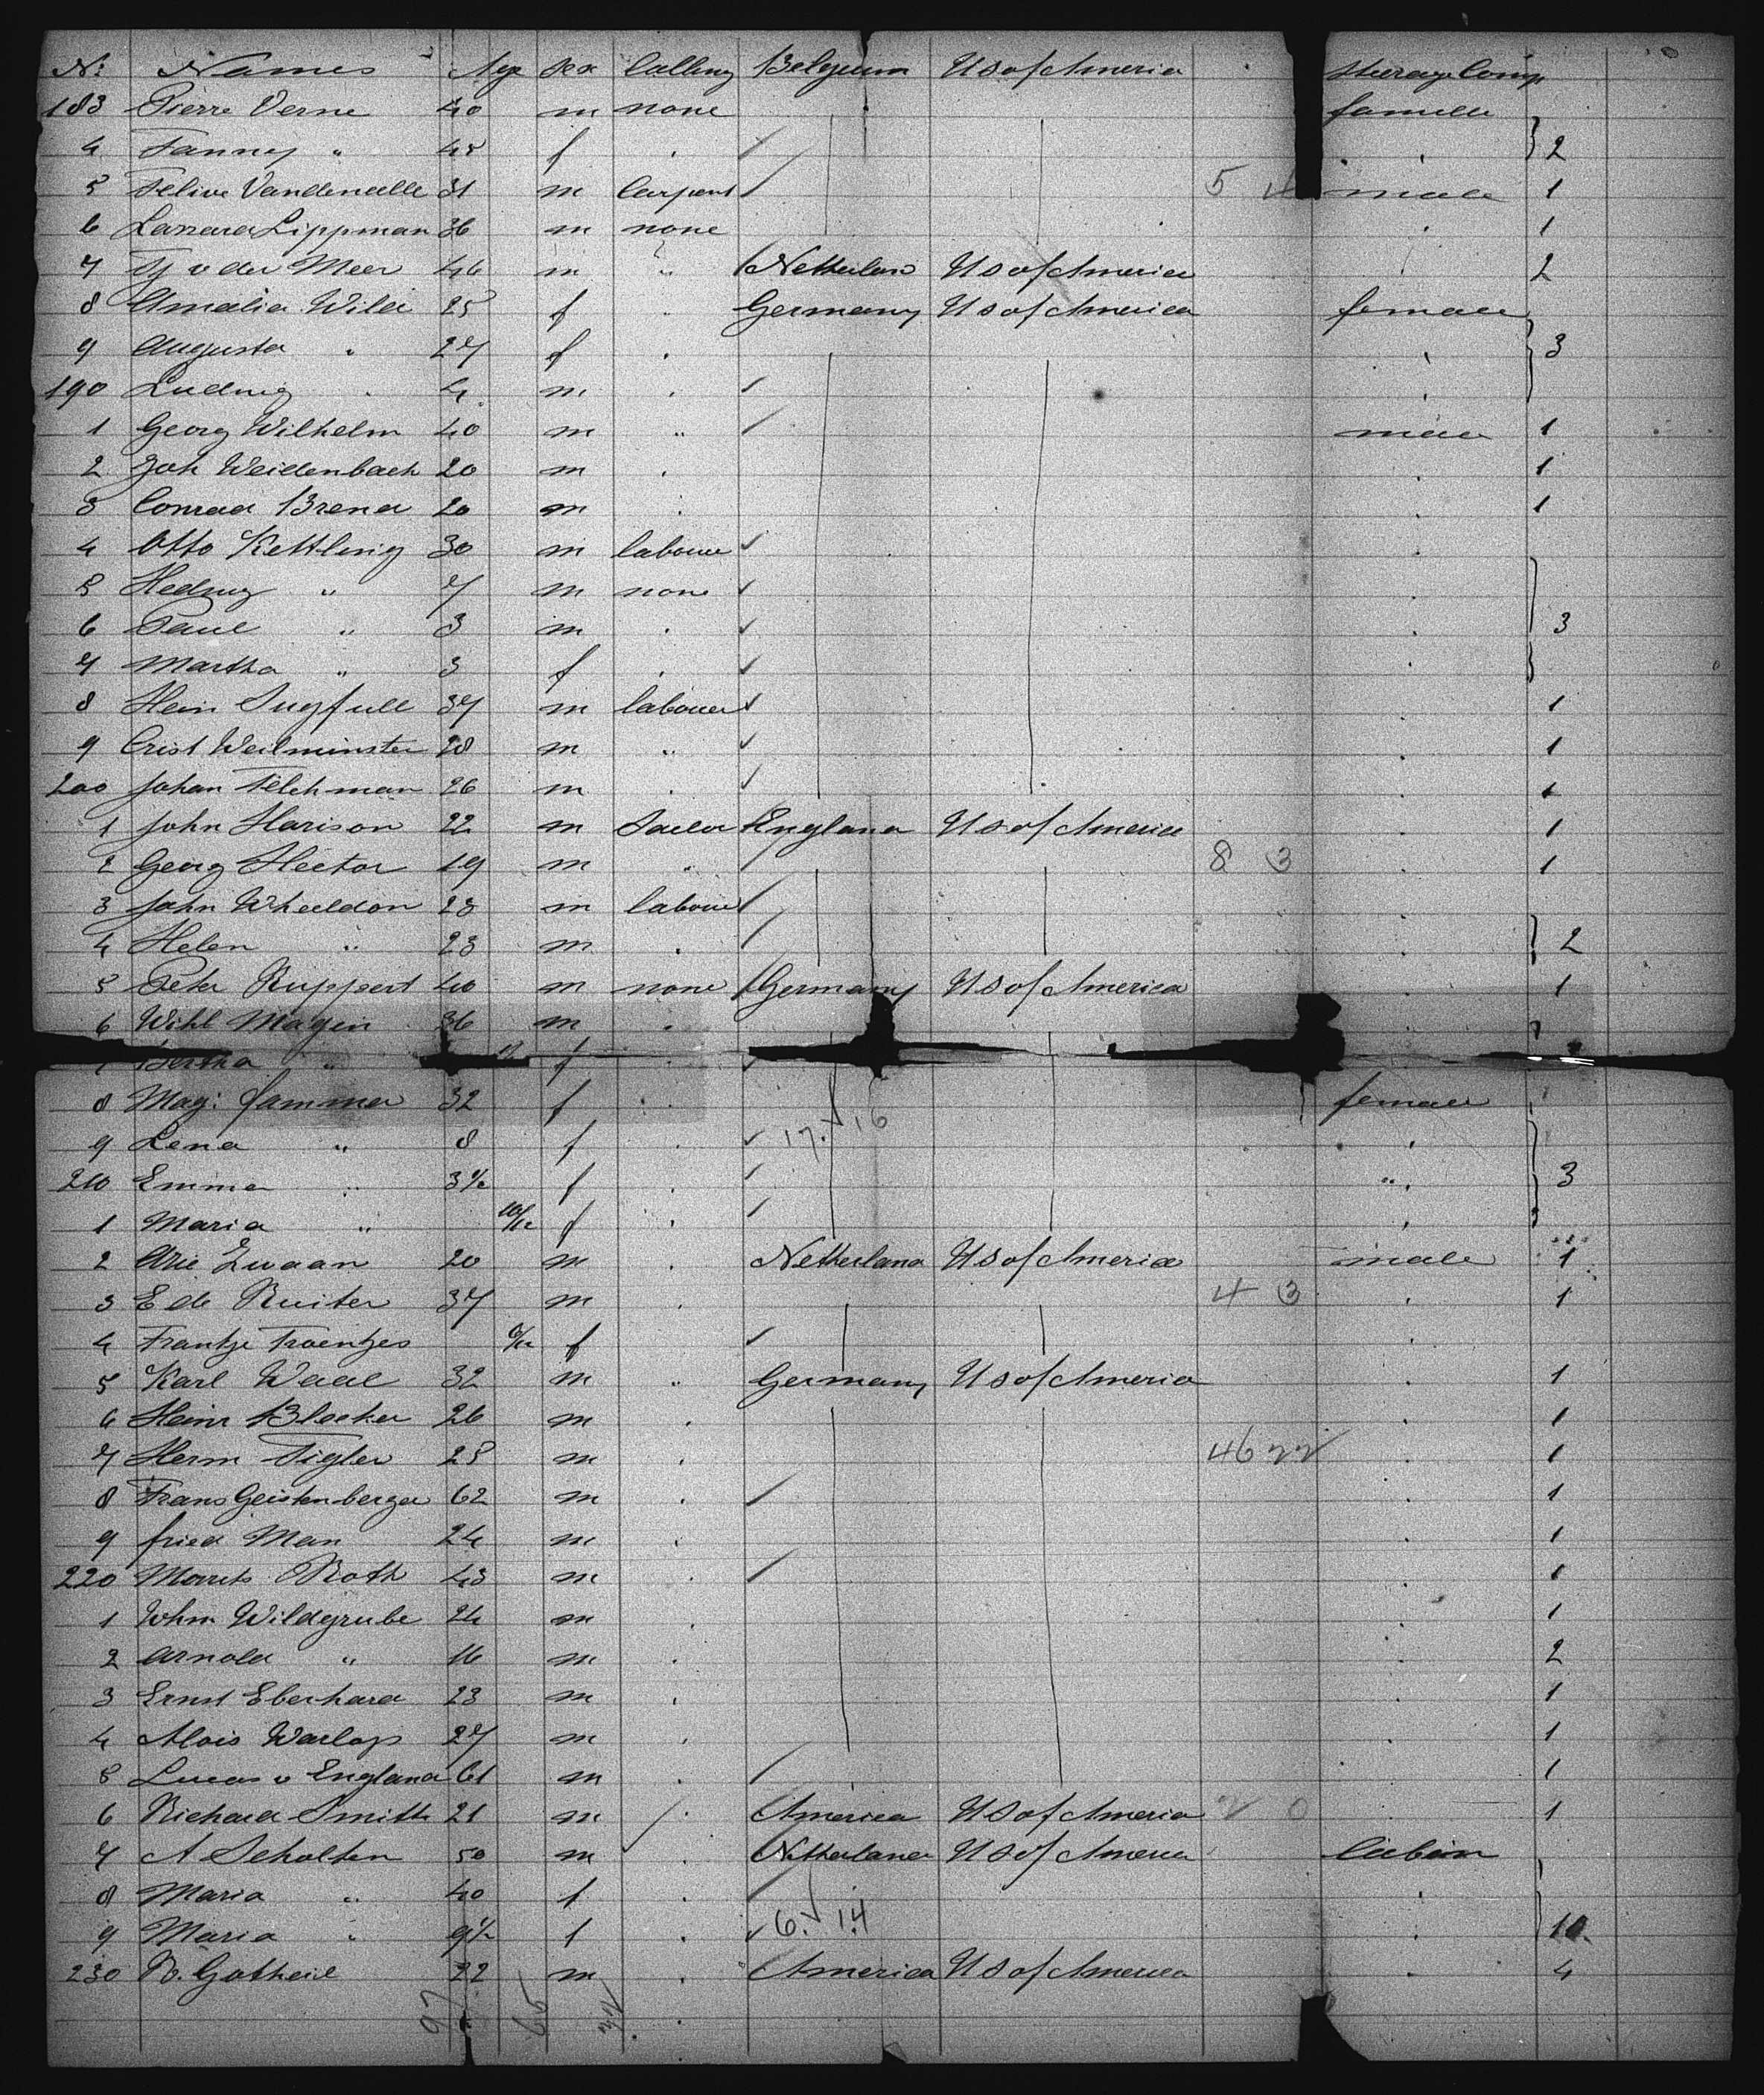 No Names Age Sex Calling Belgium US of America Steerage Comp
183 Pierre Verne 40 m none famille
4 Fanny " 45 f 2
5 Vandenalle 31 m Carpent 5 male 1
6 Lazzara Lippman 36 m none 1
7 v der Meer 46 m " Netherlan US of America 2
8 Amalia Wilde 25 f Germany US of America female
9 Augusta " 27 f 3
190 Ludwig 4 m
1 Georg Wilhelm 40 m " male 1
2 Joh Weidenbach 20 m 1
3 Conrad Brend 20 m 1
4 Otto Kettling 30 m labouer
5 Hedwig " 7 m none
6 Paul " 3 m 3
7 Martha " 3 f
8 Hein 37 m labouer 1
9 Crist Weilminster 28 m " 1
200 Johan Felchman 26 m 1
1 John Harison 22 m Sailor England US of America 1
2 Georg Hector 19 m " 8 3 1
3 John Wheeldon 23 m labouer
4 Helen " 23 m 2
5 Peter Ruppert 40 m none Germany US of America 1
6 Wihl Magin 36 m
7 Bertha " f
8 Mag: Jammer 32 f female
9 Lena " 8 f 17. 16
210 Emma " 3½ f " 3
1 Maria " 10/12 f
2 Arie Zwaan 20 m Netherland US of America male 1
3 E de Ruiter 37 m 4 3 1
4 Frantje Troentjes 6/12 f
5 Karl Waal 32 m " Germany US of America 1
6 Heinr Blocker 26 m 1
7 Herm Tigler 25 m 46 22 1
8 Frans Geistenberger 62 m 1
9 Fried Man 24 m 1
220 Morrits Roth 43 m 1
1 Whm Wildegrube 24 m 1
2 Arnold " 16 m 2
3 Ernst Eberhard 23 m 1
4 Alois Warlop 27 m 1
5 Lucas v England 61 m 1
6 Richard Smith 21 m America US of America 2 0 1
7 A Scholten 50 m Netherland US of America Cabin
8 Maria " 40 f
9 Maria " 9½ f 6. 14 10
230 R. Gotheil 22 m America US of America 4
97 65 32